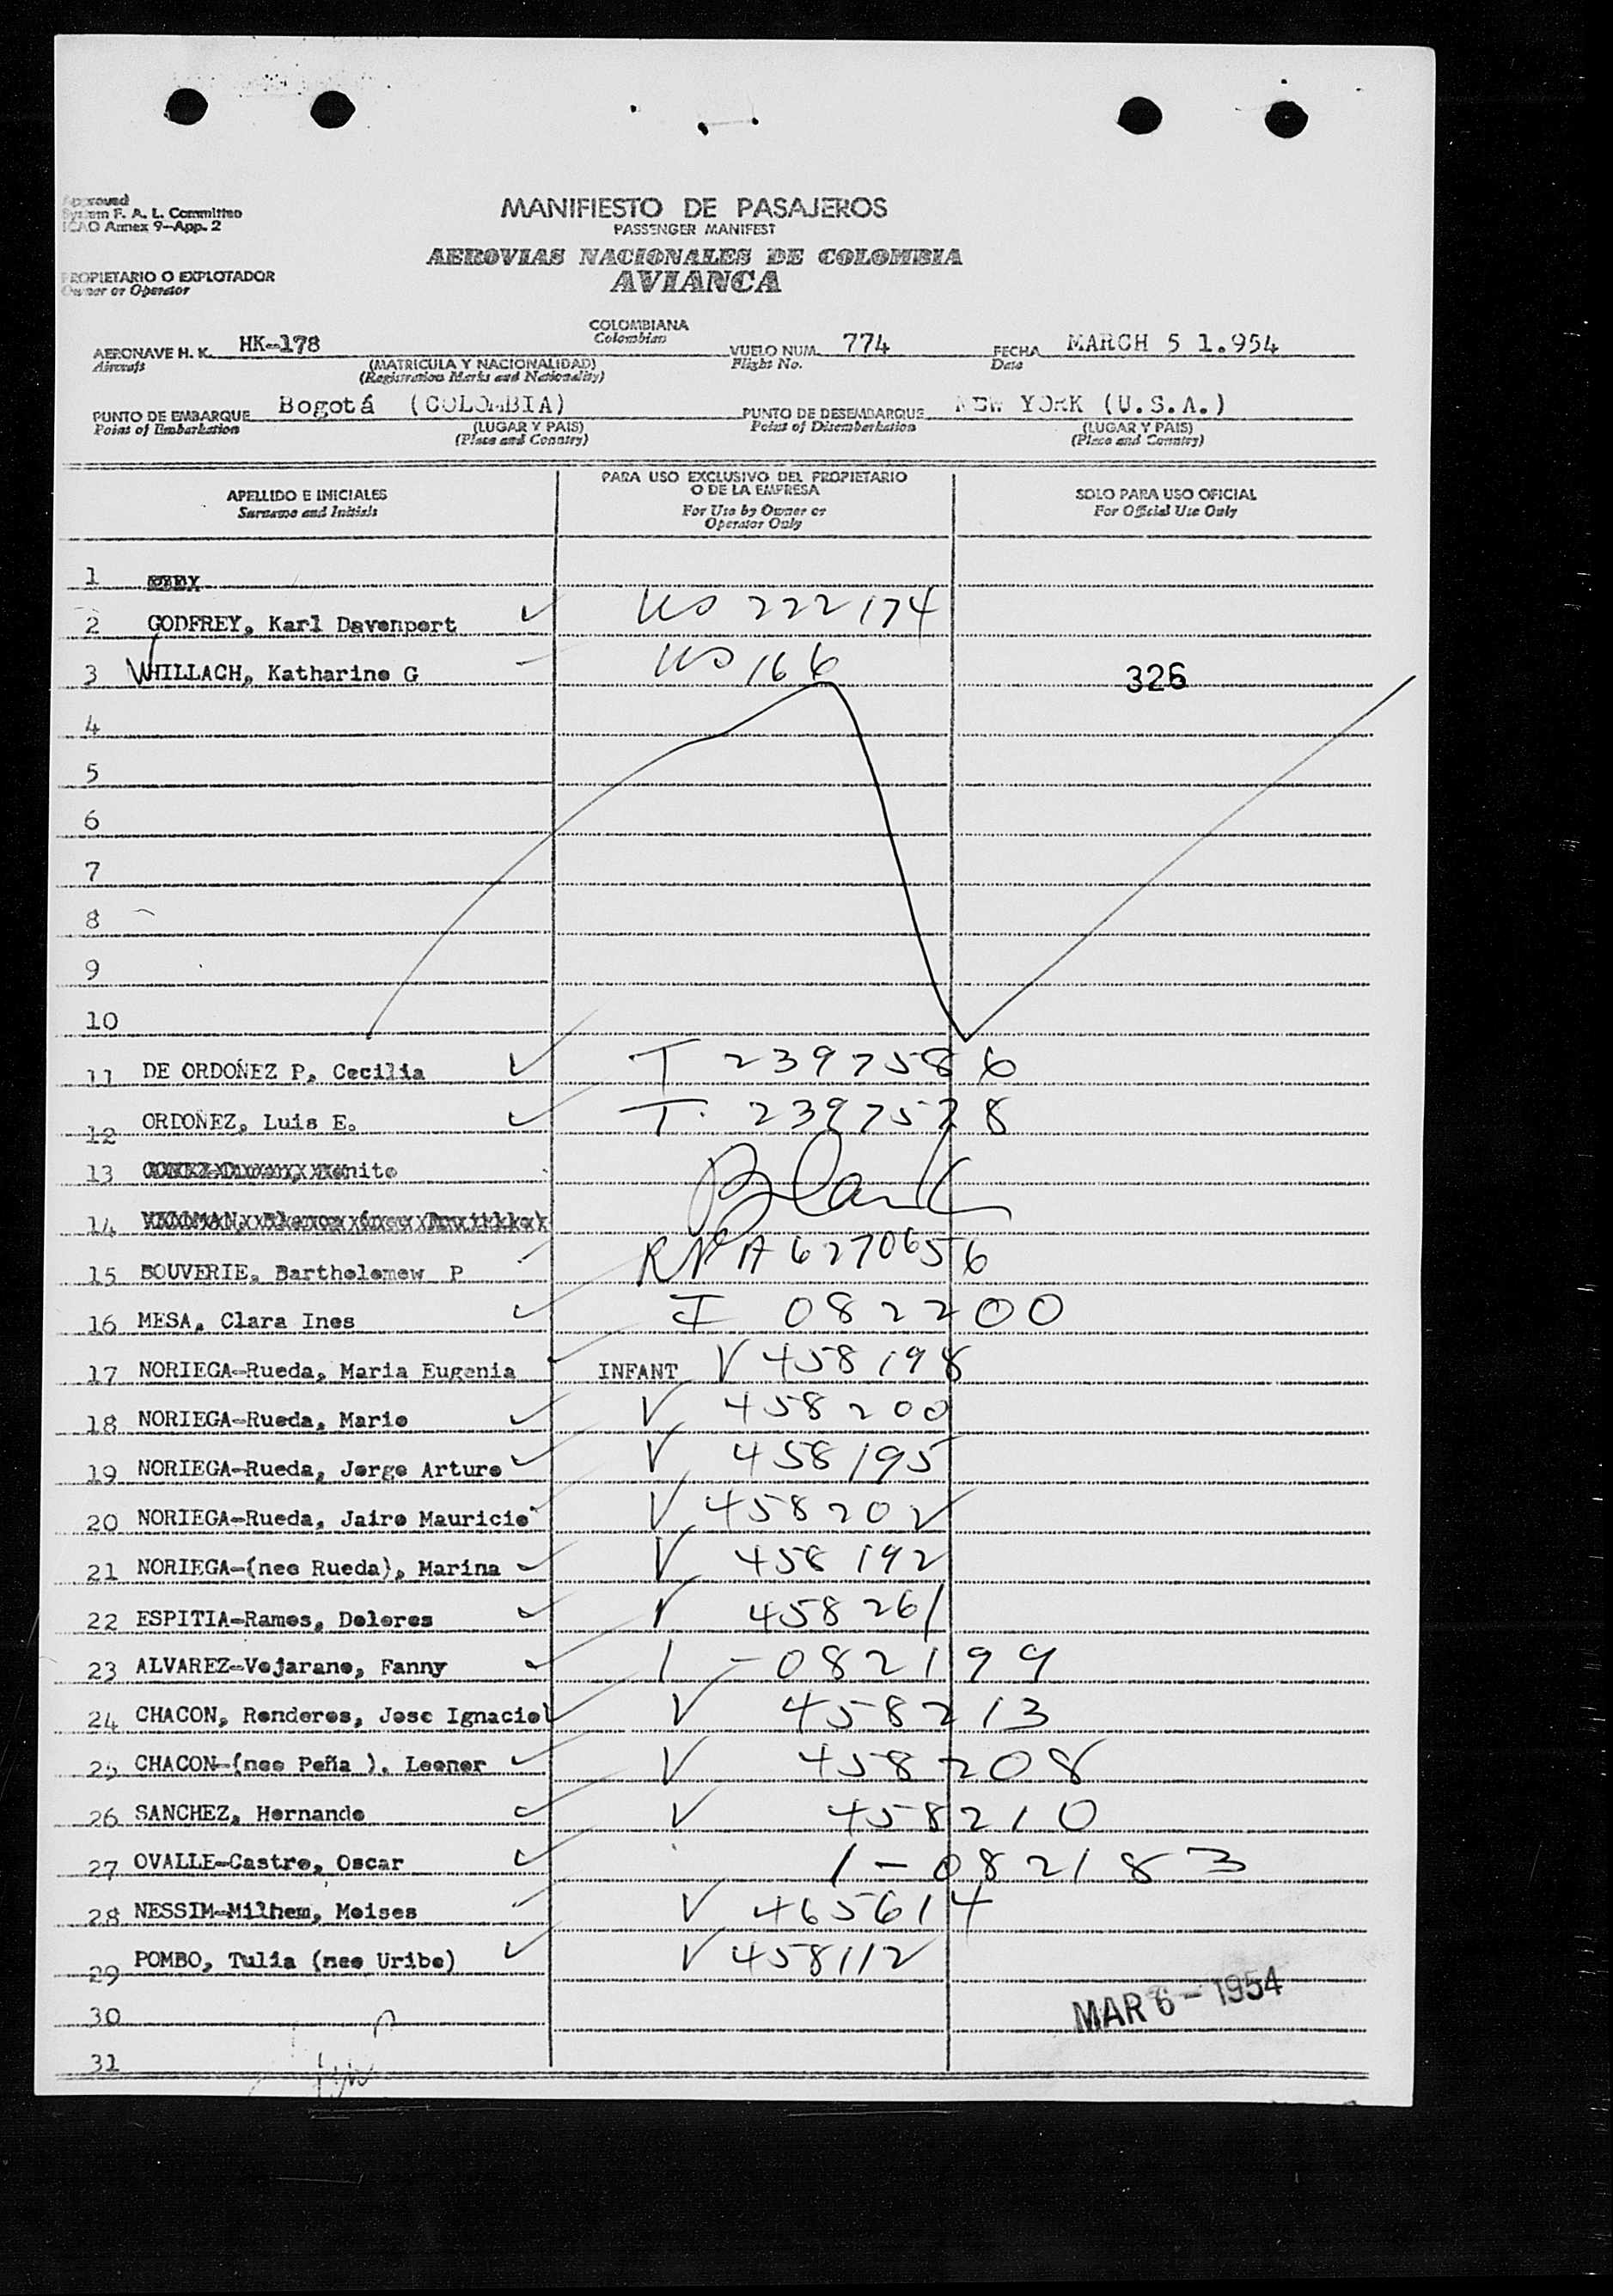 Approved
System F. A. L. Committee
ICAO Annex 9-App. 2
MANIFIESTO DE PASAJEROS
PASSENGER MANIFEST
AEROVIAS NACIONALES DE COLOMBIA
AVIANCA
PROPIETARIO O EXPLOTADOR
Owner or Operator
COLOMBIANA
Colombian
AERONAVE H. K. HK-178 VUELO NUM. 774 FECHA MARCH 5 1.954
Aircraft (MATRICULA Y NACIONALIDAD) Flight No. Date
(Registration Marks and Nationality)
PUNTO DE EMBARQUE Bogotá (COLOMBIA) PUNTO DE DESEMBARQUE NEW YORK (U.S.A.)
Point of Embarkation (LUGAR Y PAIS) Point of Disembarkation (LUGAR Y PAIS)
(Place and Country) (Place and Country)
APELLIDO E INICIALES
Surname and Initials
PARA USO EXCLUSIVO DEL PROPIETARIO
O DE LA EMPRESA
For Use by Owner or
Operator Only
SOLO PARA USO OFICIAL
For Official Use Only
1
2 GODFREY, Karl Davenport US 222174
3 WHILLACH, Katharine G US 166 326
4
5
6
7
8
9
10
11 DE ORDOÑEZ P, Cecilia T 2397586
12 ORDOÑEZ, Luis E. T. 2397578
13 Blank
14
15 BOUVERIE, Bartholomew P RP A6270656
16 MESA, Clara Ines I 082200
17 NORIEGA-Rueda, Maria Eugenia INFANT V 458198
18 NORIEGA-Rueda, Mario V 458200
19 NORIEGA-Rueda, Jorge Arturo V 458195
20 NORIEGA-Rueda, Jairo Mauricio V 458202
21 NORIEGA-(nee Rueda), Marina V 458192
22 ESPITIA-Ramos, Dolores V 458261
23 ALVAREZ-Vejarano, Fanny I-082199
24 CHACON, Renderos, Jose Ignacio V 458213
25 CHACON-(nee Peña ). Leonor V 458208
26 SANCHEZ, Hernando V 458210
27 OVALLE-Castro, Oscar I-082183
28 NESSIM-Milhem, Moises V 465614
29 POMBO, Tulia (nee Uribe) V 458112
30 MAR 6 - 1954
31